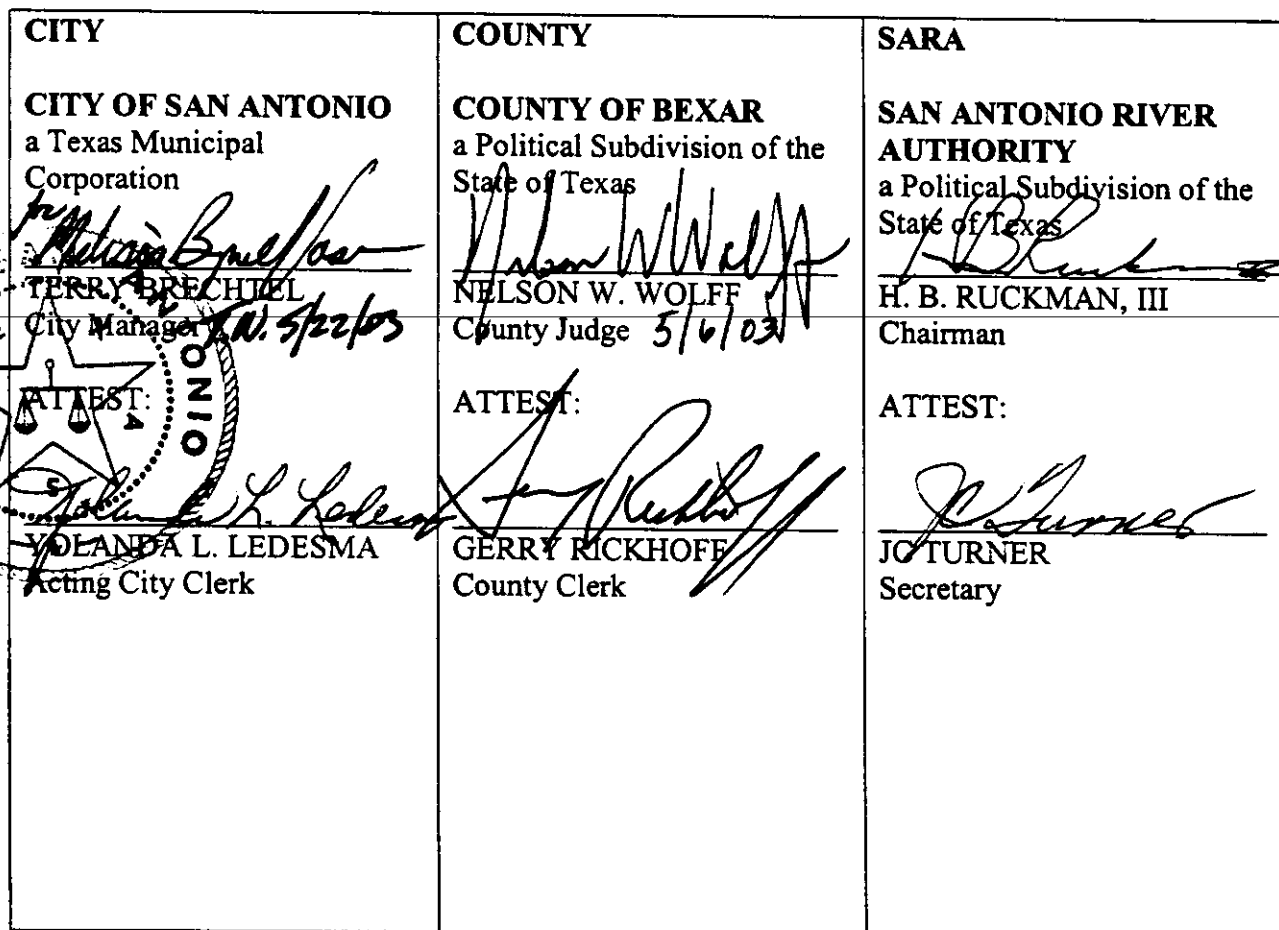 CITY
CITY OF SAN ANTONIO
a Texas Municipal
Corporation
for Melissa
TERRY BRECHTEL
City Manager 5/22/03
ATTEST:
Yolanda L. Ledesma
YOLANDA L. LEDESMA
Acting City Clerk
ONIO
COUNTY
COUNTY OF BEXAR
a Political Subdivision of the
State of Texas
Nelson W Wolff
NELSON W. WOLFF
County Judge 5/6/03
ATTEST:
Gerry Rickhoff
GERRY RICKHOFF
County Clerk
SARA
SAN ANTONIO RIVER
AUTHORITY
a Political Subdivision of the
State of Texas
HB Ruckman
H. B. RUCKMAN, III
Chairman
ATTEST:
Jo Turner
JO TURNER
Secretary